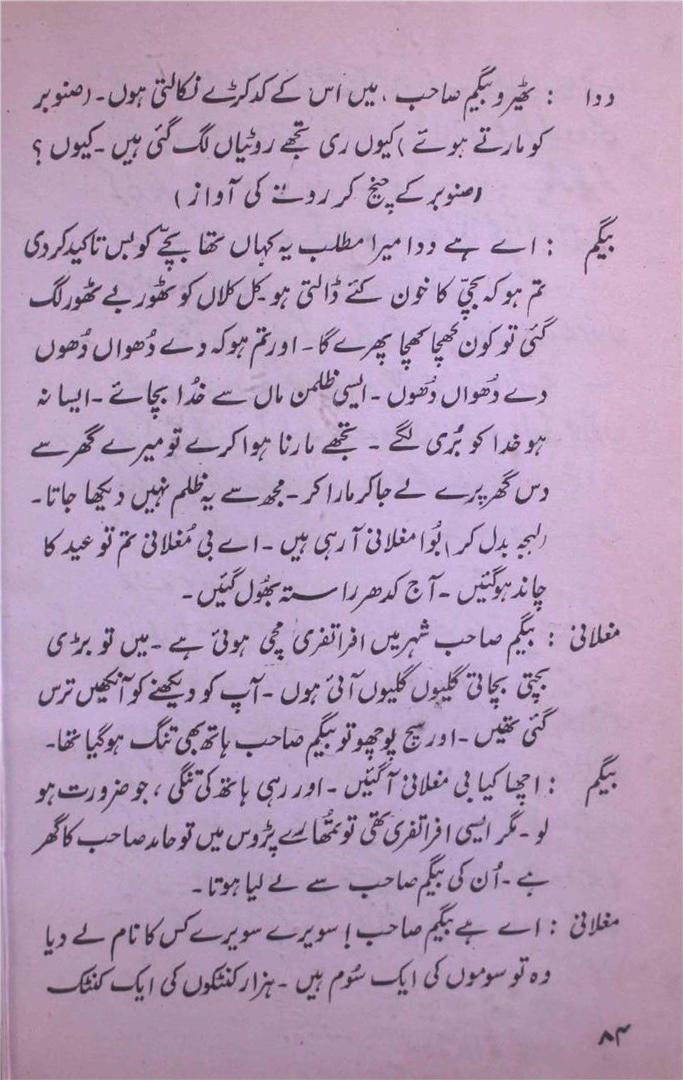 ددا : ٹھیرو بیگم صاحب ، میں اس کے کدکڑے نکالتی ہوں ۔ (صنوبر
کو مارتے ہوئے) کیوں ری تجھے روٹیاں لگ گئی ہیں ۔ کیوں ؟
(صنوبر کے چیخ کر رونے کی آواز)
بیگم : اے ہے ددا میرا مطلب یہ کہاں تھا بچے کو بس تاکید کر دی
تم ہو کہ بچی کا خون کئے ڈالتی ہو کل کلاں کو ٹھور بے ٹھور لگ
گئی تو کون کھچا کھچا پھرے گا ۔ اور تم ہو کہ دے دُھواں دُھوں
دے دُھواں دُھوں ۔ ایسی ظلمن ماں سے خُدا بچائے ۔ ایسا نہ
ہو خدا کو بُری لگے ۔ تجھے مارنا ہوا کرے تو میرے گھر سے
دس گھر پرے لے جا کر مارا کر ۔ مجھ سے یہ ظلم نہیں دیکھا جاتا ۔
(لہجہ بدل کر) بُوا مغلانی آ رہی ہیں ۔ اے بی مُغلانی تم تو عید کا
چاند ہو گئیں ۔ آج کدھر راستہ بھُول گئیں ۔
مغلانی : بیگم صاحب شہر میں افراتفری مچی ہوئی ہے ۔ میں تو بڑی
بچتی بچاتی گلیوں گلیوں آئی ہوں ۔ آپ کو دیکھنے کو آنکھیں ترس
گئی تھیں ۔ اور سچ پوچھو تو بیگم صاحب ہاتھ بھی تنگ ہو گیا تھا ۔
بیگم : اچھا کیا بی مغلانی آ گئیں ۔ اور رہی ہاتھ کی تنگی ، جو ضرورت ہو
لو ۔ مگر ایسی افراتفری تھی تو تمُھارے پڑوس میں تو حامد صاحب کا گھر
ہے ۔ اُن کی بیگم صاحب سے لے لیا ہوتا ۔
مغلانی : اے ہے بیگم صاحب ! سویرے سویرے کس کا نام لے دیا
وہ تو سوموں کی ایک سُوم ہیں ۔ ہزار کنٹکوں کی ایک کنٹک
۸۴